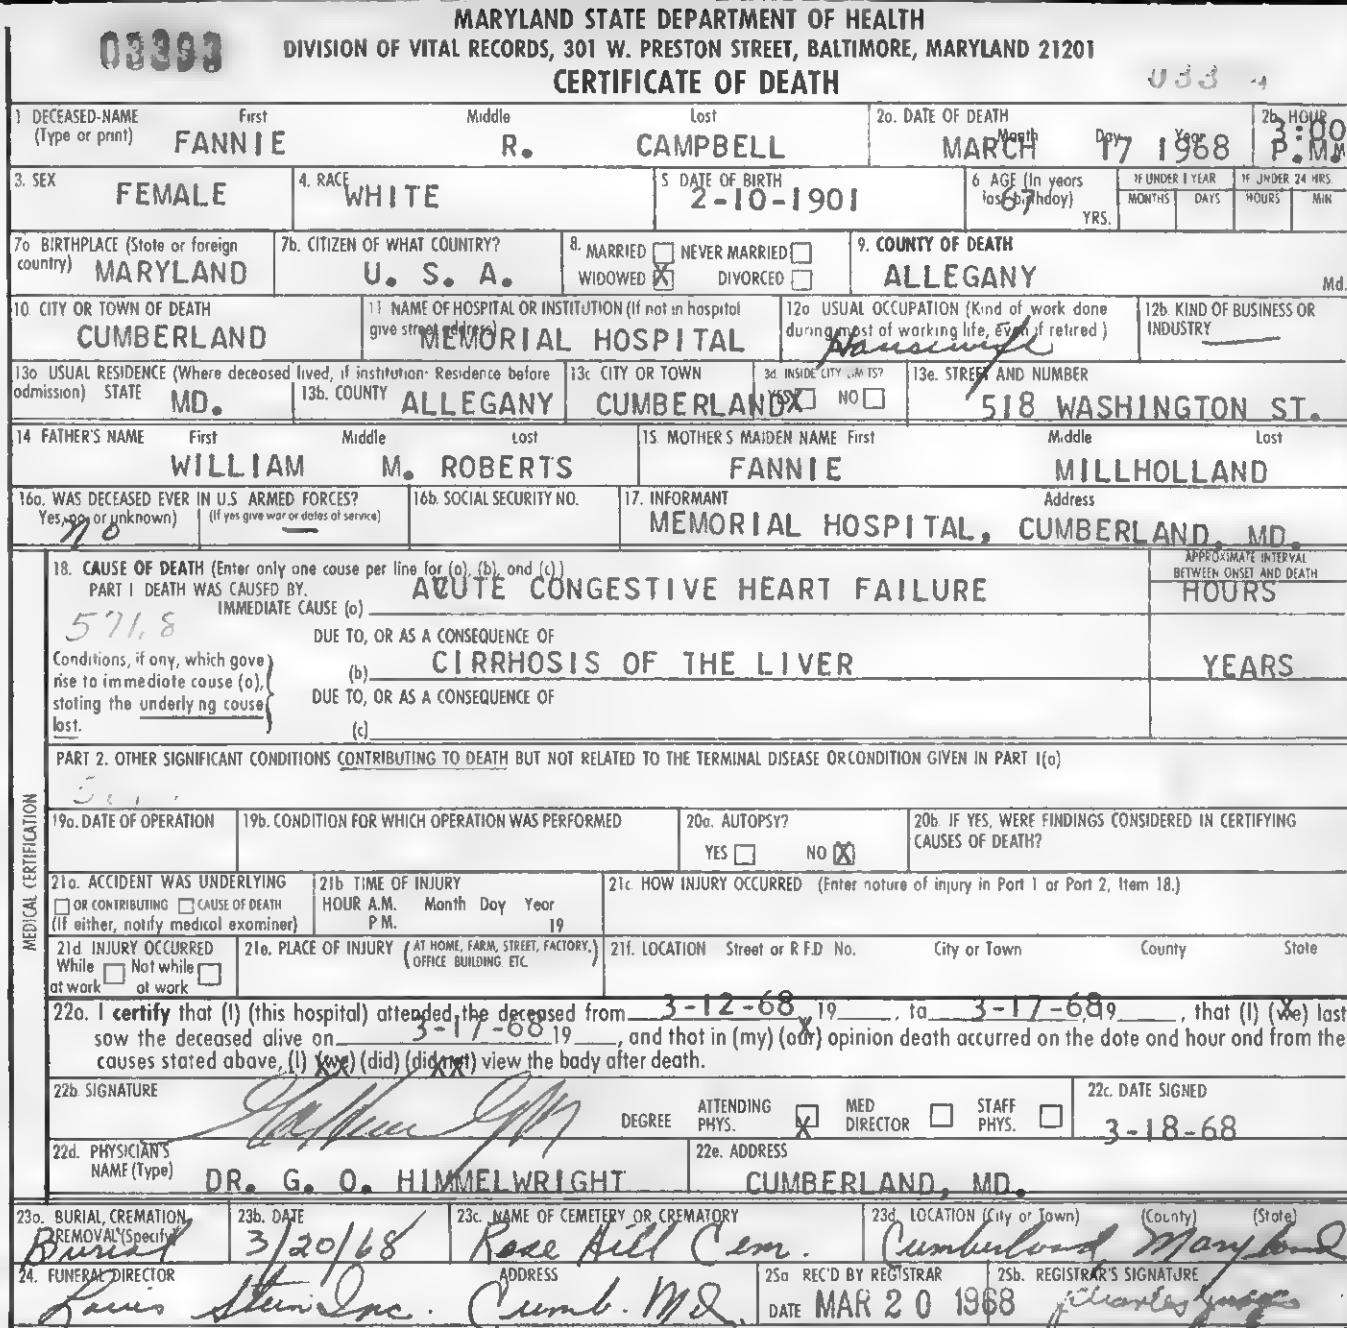 MARYLAND STATE DEPARTMENT OF HEALTH
03393 DIVISION OF VITAL RECORDS, 301 W. PRESTON STREET, BALTIMORE, MARYLAND 21201
CERTIFICATE OF DEATH
1 DECEASED-NAME (Type or print) First Middle Last 2a. DATE OF DEATH Month Day Year 2b. HOUR
FANNIE R. CAMPBELL MARCH 17 1968 3:00 P.M.
3. SEX 4. RACE 5 DATE OF BIRTH 6 AGE (In years last birthday) YRS. IF UNDER 1 YEAR MONTHS DAYS IF UNDER 24 HRS. HOURS MIN
FEMALE WHITE 2-10-1901 67
7a BIRTHPLACE (State or foreign country) 7b. CITIZEN OF WHAT COUNTRY? 8. MARRIED NEVER MARRIED WIDOWED X DIVORCED 9. COUNTY OF DEATH
MARYLAND U. S. A. ALLEGANY Md.
10. CITY OR TOWN OF DEATH 11 NAME OF HOSPITAL OR INSTITUTION (If not in hospital give street address) 12a USUAL OCCUPATION (Kind of work done during most of working life, even if retired) 12b. KIND OF BUSINESS OR INDUSTRY
CUMBERLAND MEMORIAL HOSPITAL Housewife
13a USUAL RESIDENCE (Where deceased lived, if institution: Residence before admission) STATE 13b. COUNTY 13c CITY OR TOWN 3d. INSIDE CITY LIMITS? YES X NO 13e. STREET AND NUMBER
MD. ALLEGANY CUMBERLAND 518 WASHINGTON ST.
14 FATHER'S NAME First Middle Last 15. MOTHER'S MAIDEN NAME First Middle Last
WILLIAM M. ROBERTS FANNIE MILLHOLLAND
16a. WAS DECEASED EVER IN U.S. ARMED FORCES? Yes, no, or unknown) (If yes give war or dates of service) 16b. SOCIAL SECURITY NO. 17. INFORMANT Address
no MEMORIAL HOSPITAL, CUMBERLAND, MD.
MEDICAL CERTIFICATION
18. CAUSE OF DEATH (Enter only one cause per line for (a), (b), and (c).) APPROXIMATE INTERVAL BETWEEN ONSET AND DEATH
PART I DEATH WAS CAUSED BY.
IMMEDIATE CAUSE (a) ACUTE CONGESTIVE HEART FAILURE HOURS
571.8 DUE TO, OR AS A CONSEQUENCE OF
Conditions, if any, which gave rise to immediate cause (a), stating the underlying cause last.
(b) CIRRHOSIS OF THE LIVER YEARS
DUE TO, OR AS A CONSEQUENCE OF
(c)
PART 2. OTHER SIGNIFICANT CONDITIONS CONTRIBUTING TO DEATH BUT NOT RELATED TO THE TERMINAL DISEASE OR CONDITION GIVEN IN PART I(a)
19a. DATE OF OPERATION 19b. CONDITION FOR WHICH OPERATION WAS PERFORMED 20a. AUTOPSY? YES NO X 20b. IF YES, WERE FINDINGS CONSIDERED IN CERTIFYING CAUSES OF DEATH?
21a. ACCIDENT WAS UNDERLYING OR CONTRIBUTING CAUSE OF DEATH (If either, notify medical examiner) 21b TIME OF INJURY HOUR A.M. P.M. Month Day Year 19 21c HOW INJURY OCCURRED (Enter nature of injury in Part 1 or Part 2, Item 18.)
21d INJURY OCCURRED While at work Not while at work 21e. PLACE OF INJURY (AT HOME, FARM, STREET, FACTORY, OFFICE BUILDING, ETC. 21f. LOCATION Street or R.F.D No. City or Town County State
22a. I certify that (I) (this hospital) attended the deceased from 3-12-68 19 , to 3-17-68 19 , that (I) (we) last
saw the deceased alive on 3-17-68 19 , and that in (my) (our) opinion death occurred on the date and hour and from the
causes stated above, (I) (we) (did) (did not) view the body after death.
22b SIGNATURE DEGREE ATTENDING PHYS. X MED DIRECTOR STAFF PHYS. 22c. DATE SIGNED
3-18-68
22d. PHYSICIAN'S NAME (Type) 22e. ADDRESS
DR. G. O. HIMMELWRIGHT CUMBERLAND, MD.
23a. BURIAL, CREMATION, REMOVAL (Specify) 23b. DATE 23c. NAME OF CEMETERY OR CREMATORY 23d. LOCATION (City or Town) (County) (State)
Burial 3/20/68 Rose Hill Cem. Cumberland Maryland
24. FUNERAL DIRECTOR ADDRESS 25a REC'D BY REGISTRAR 25b. REGISTRAR'S SIGNATURE
Louis Stein Inc. Cumb. Md. DATE MAR 20 1968 Charles